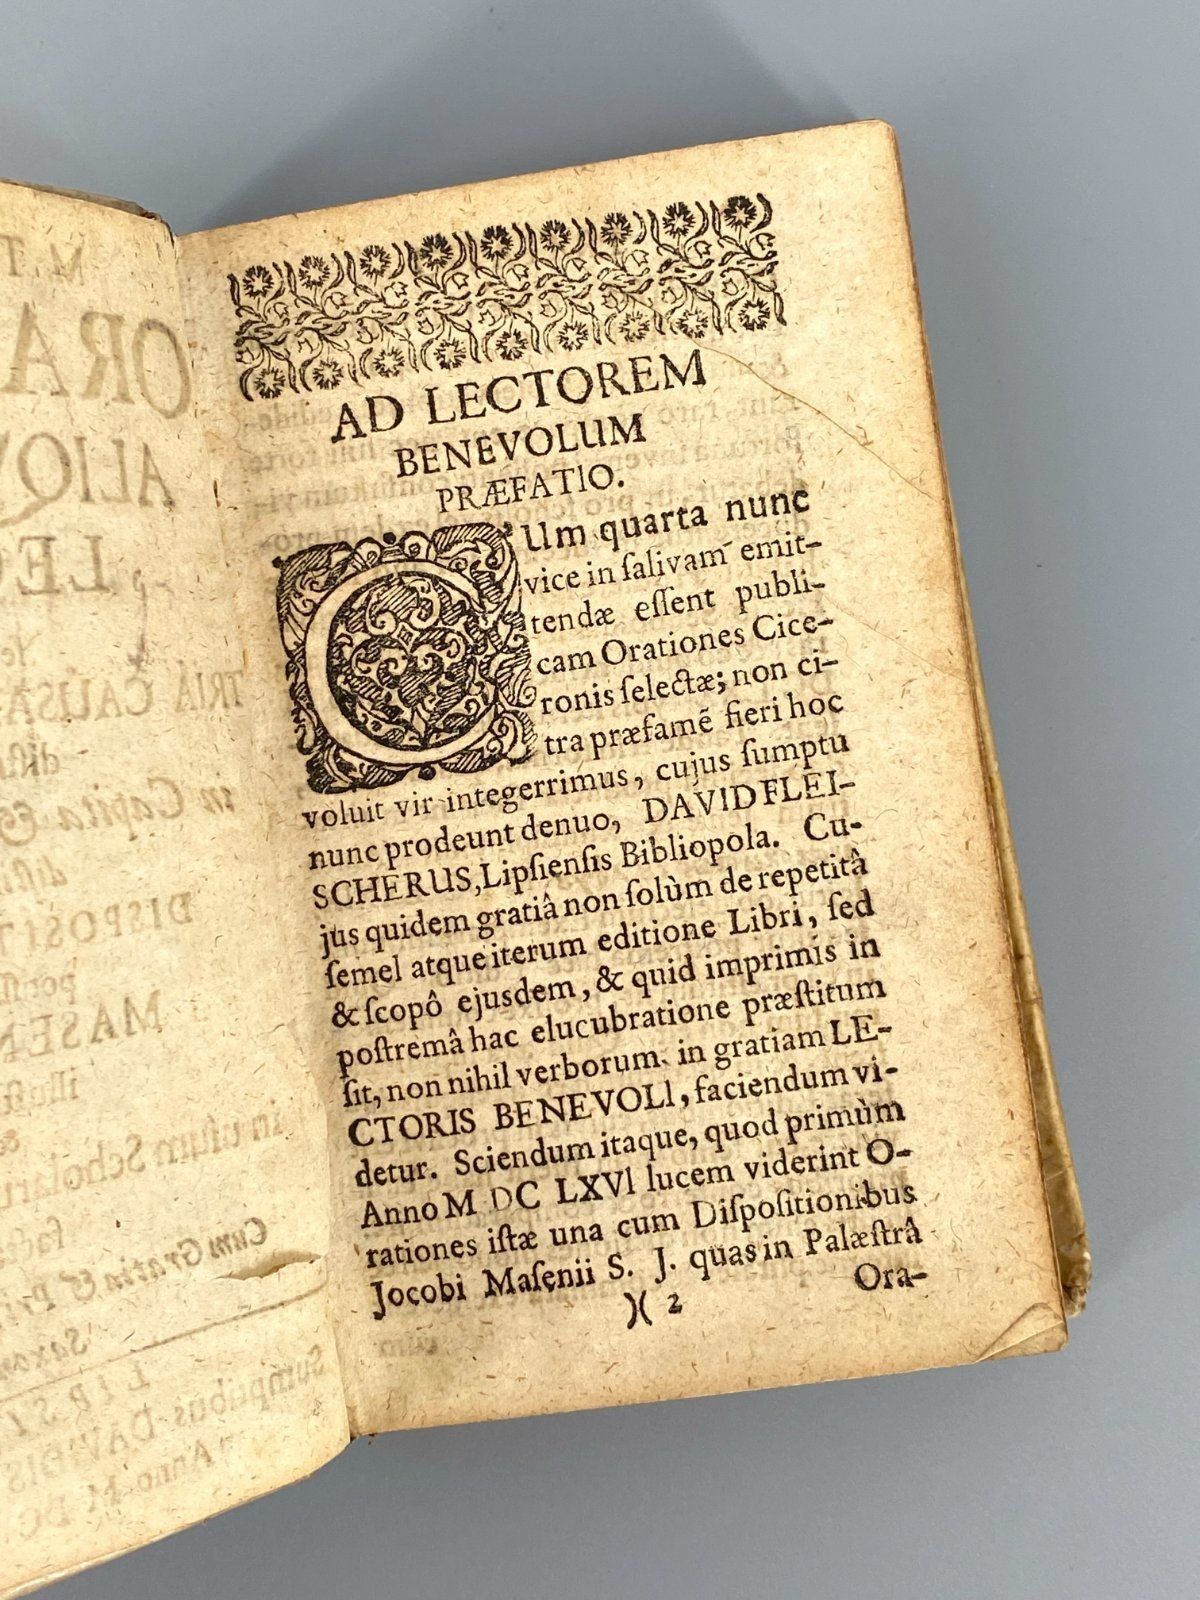 AD LECTOREM
BENEVOLUM
PRÆFATIO.
CUm quarta nunc
vice in ſalivam emit-
tendæ eſſent publi-
cam Orationes Cice-
ronis ſelectæ; non ci-
tra præfamẽ fieri hoc
voluit vir integerrimus, cujus ſumptu
nunc prodeunt denuo, DAVID FLEI-
SCHERUS, Lipſienſis Bibliopola. Cu-
jus quidem gratiâ non ſolùm de repetitâ
ſemel atque iterum editione Libri, ſed
& ſcopô ejusdem, & quid imprimis in
poſtremâ hac elucubratione præſtitum
ſit, non nihil verborum in gratiam LE-
CTORIS BENEVOLI, faciendum vi-
detur. Sciendum itaque, quod primùm
Anno M DC LXVI lucem viderint O-
rationes iſtæ una cum Diſpoſitionibus
Jocobi Maſenii S. J. quas in Palæſtrâ
)( 2
Ora-